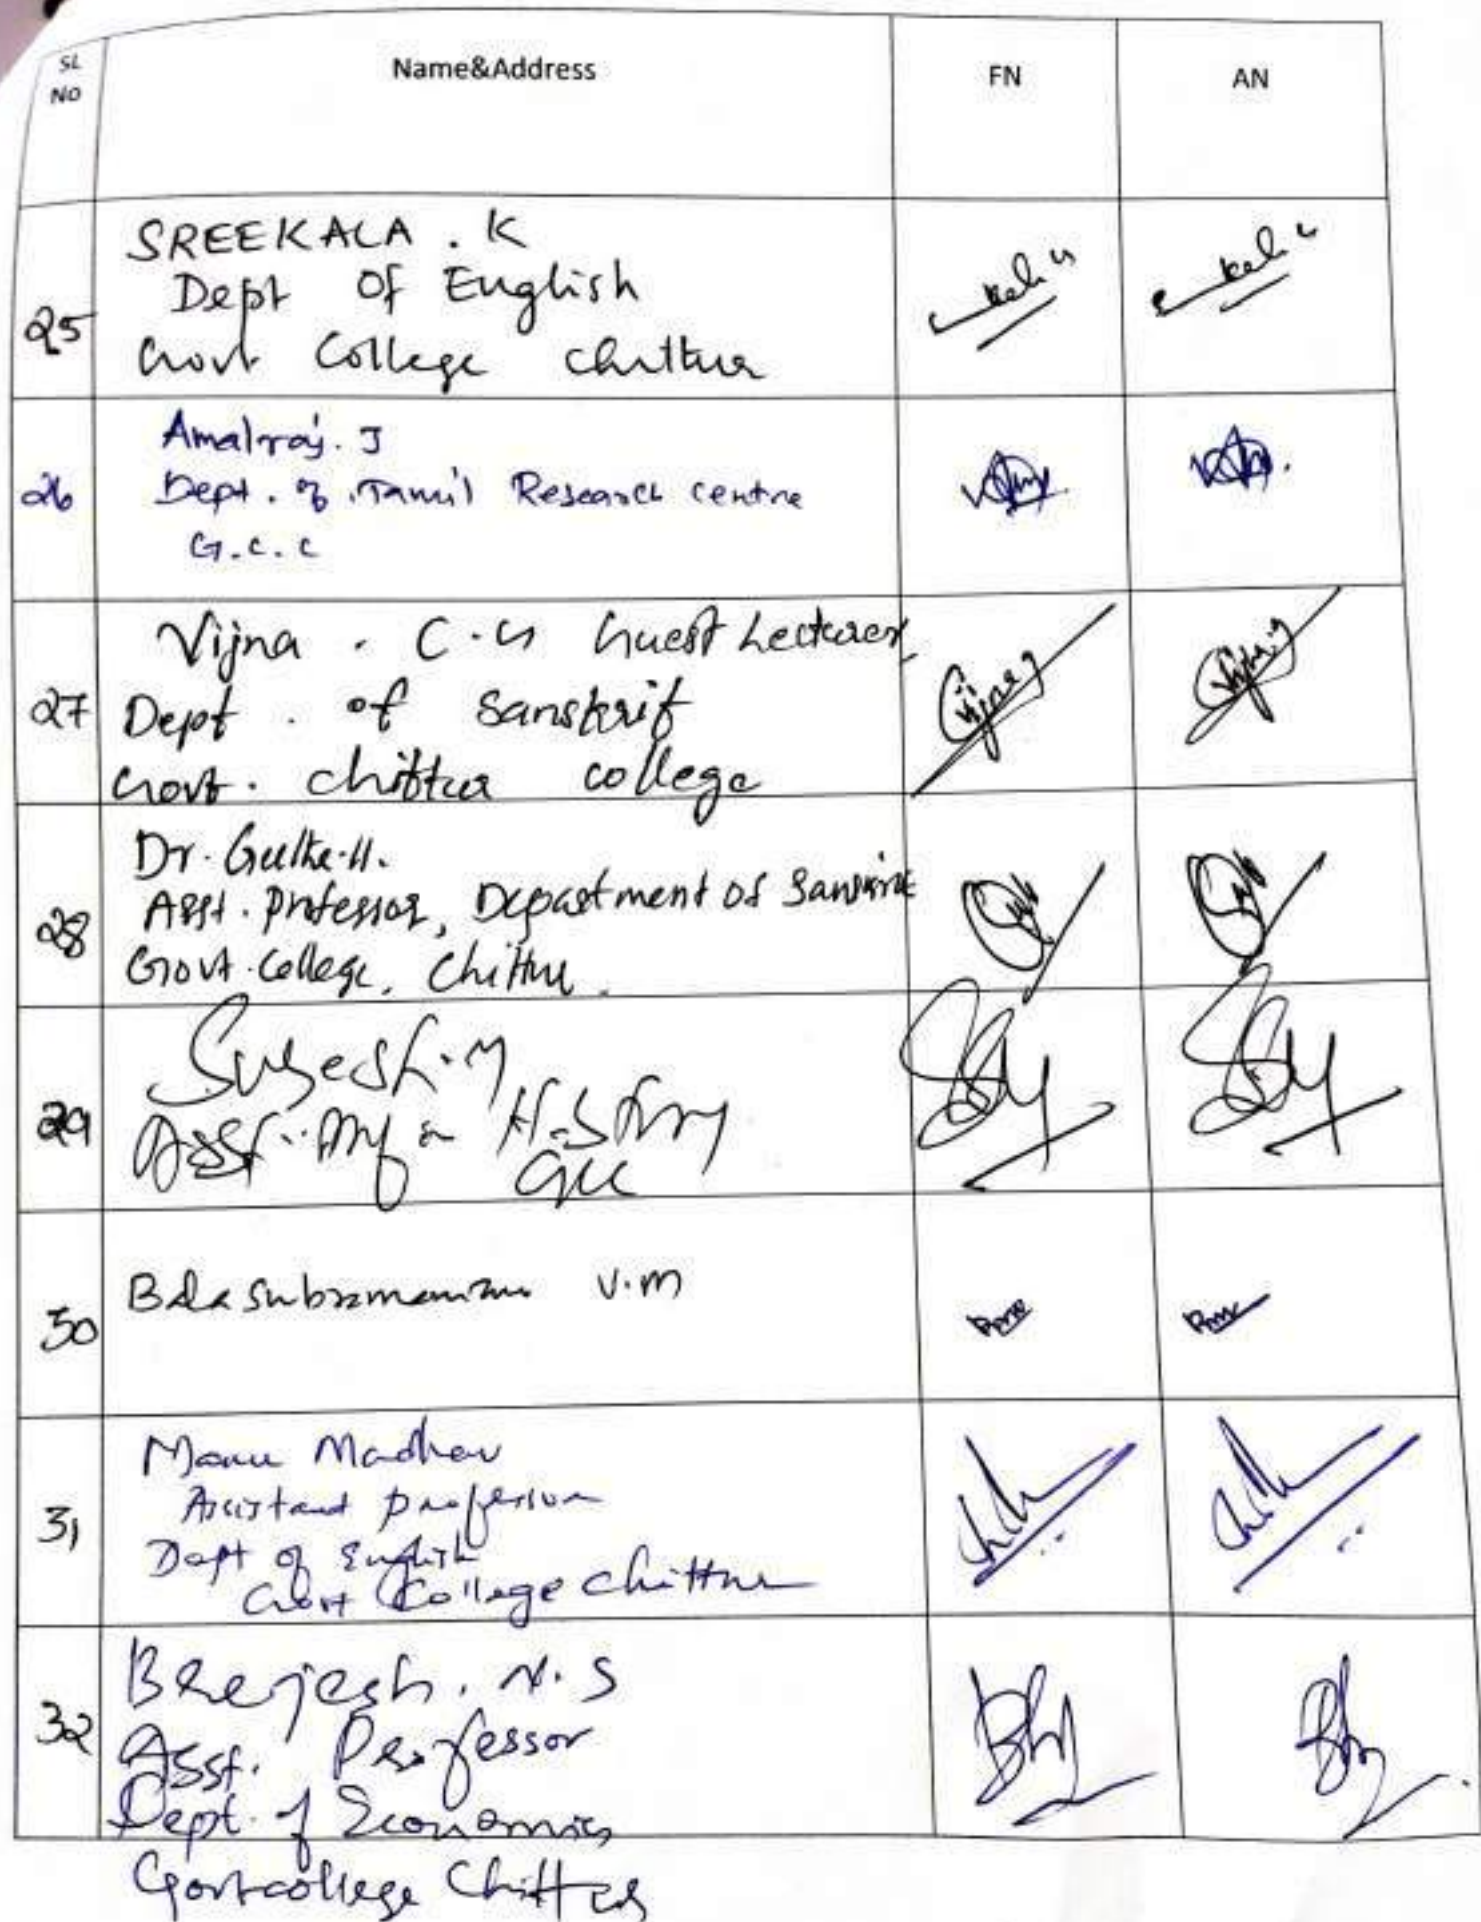 SL No Name&Address FN AN
25
SREEKALA . K
Dept Of English
Govt College Chittur
26
Amalraj. J
Dept. of Tamil Research Centre
G.C.C
27
Vijna . C.G Guest Lecturer
Dept . of Sanskrit
Govt. Chittur college
28
Dr. Geetha.H.
Asst. Professor, Department of Sanskrit
Govt. College, Chittur.
29
Suresh.M
Asst. History
GCC
30
Balasubramanian V.M
31
Manu Madhav
Assistant professor
Dept of English
Govt College Chittur
32
Breejesh. N.S
Asst. Professor
Dept. of Economics
Govt college Chittur